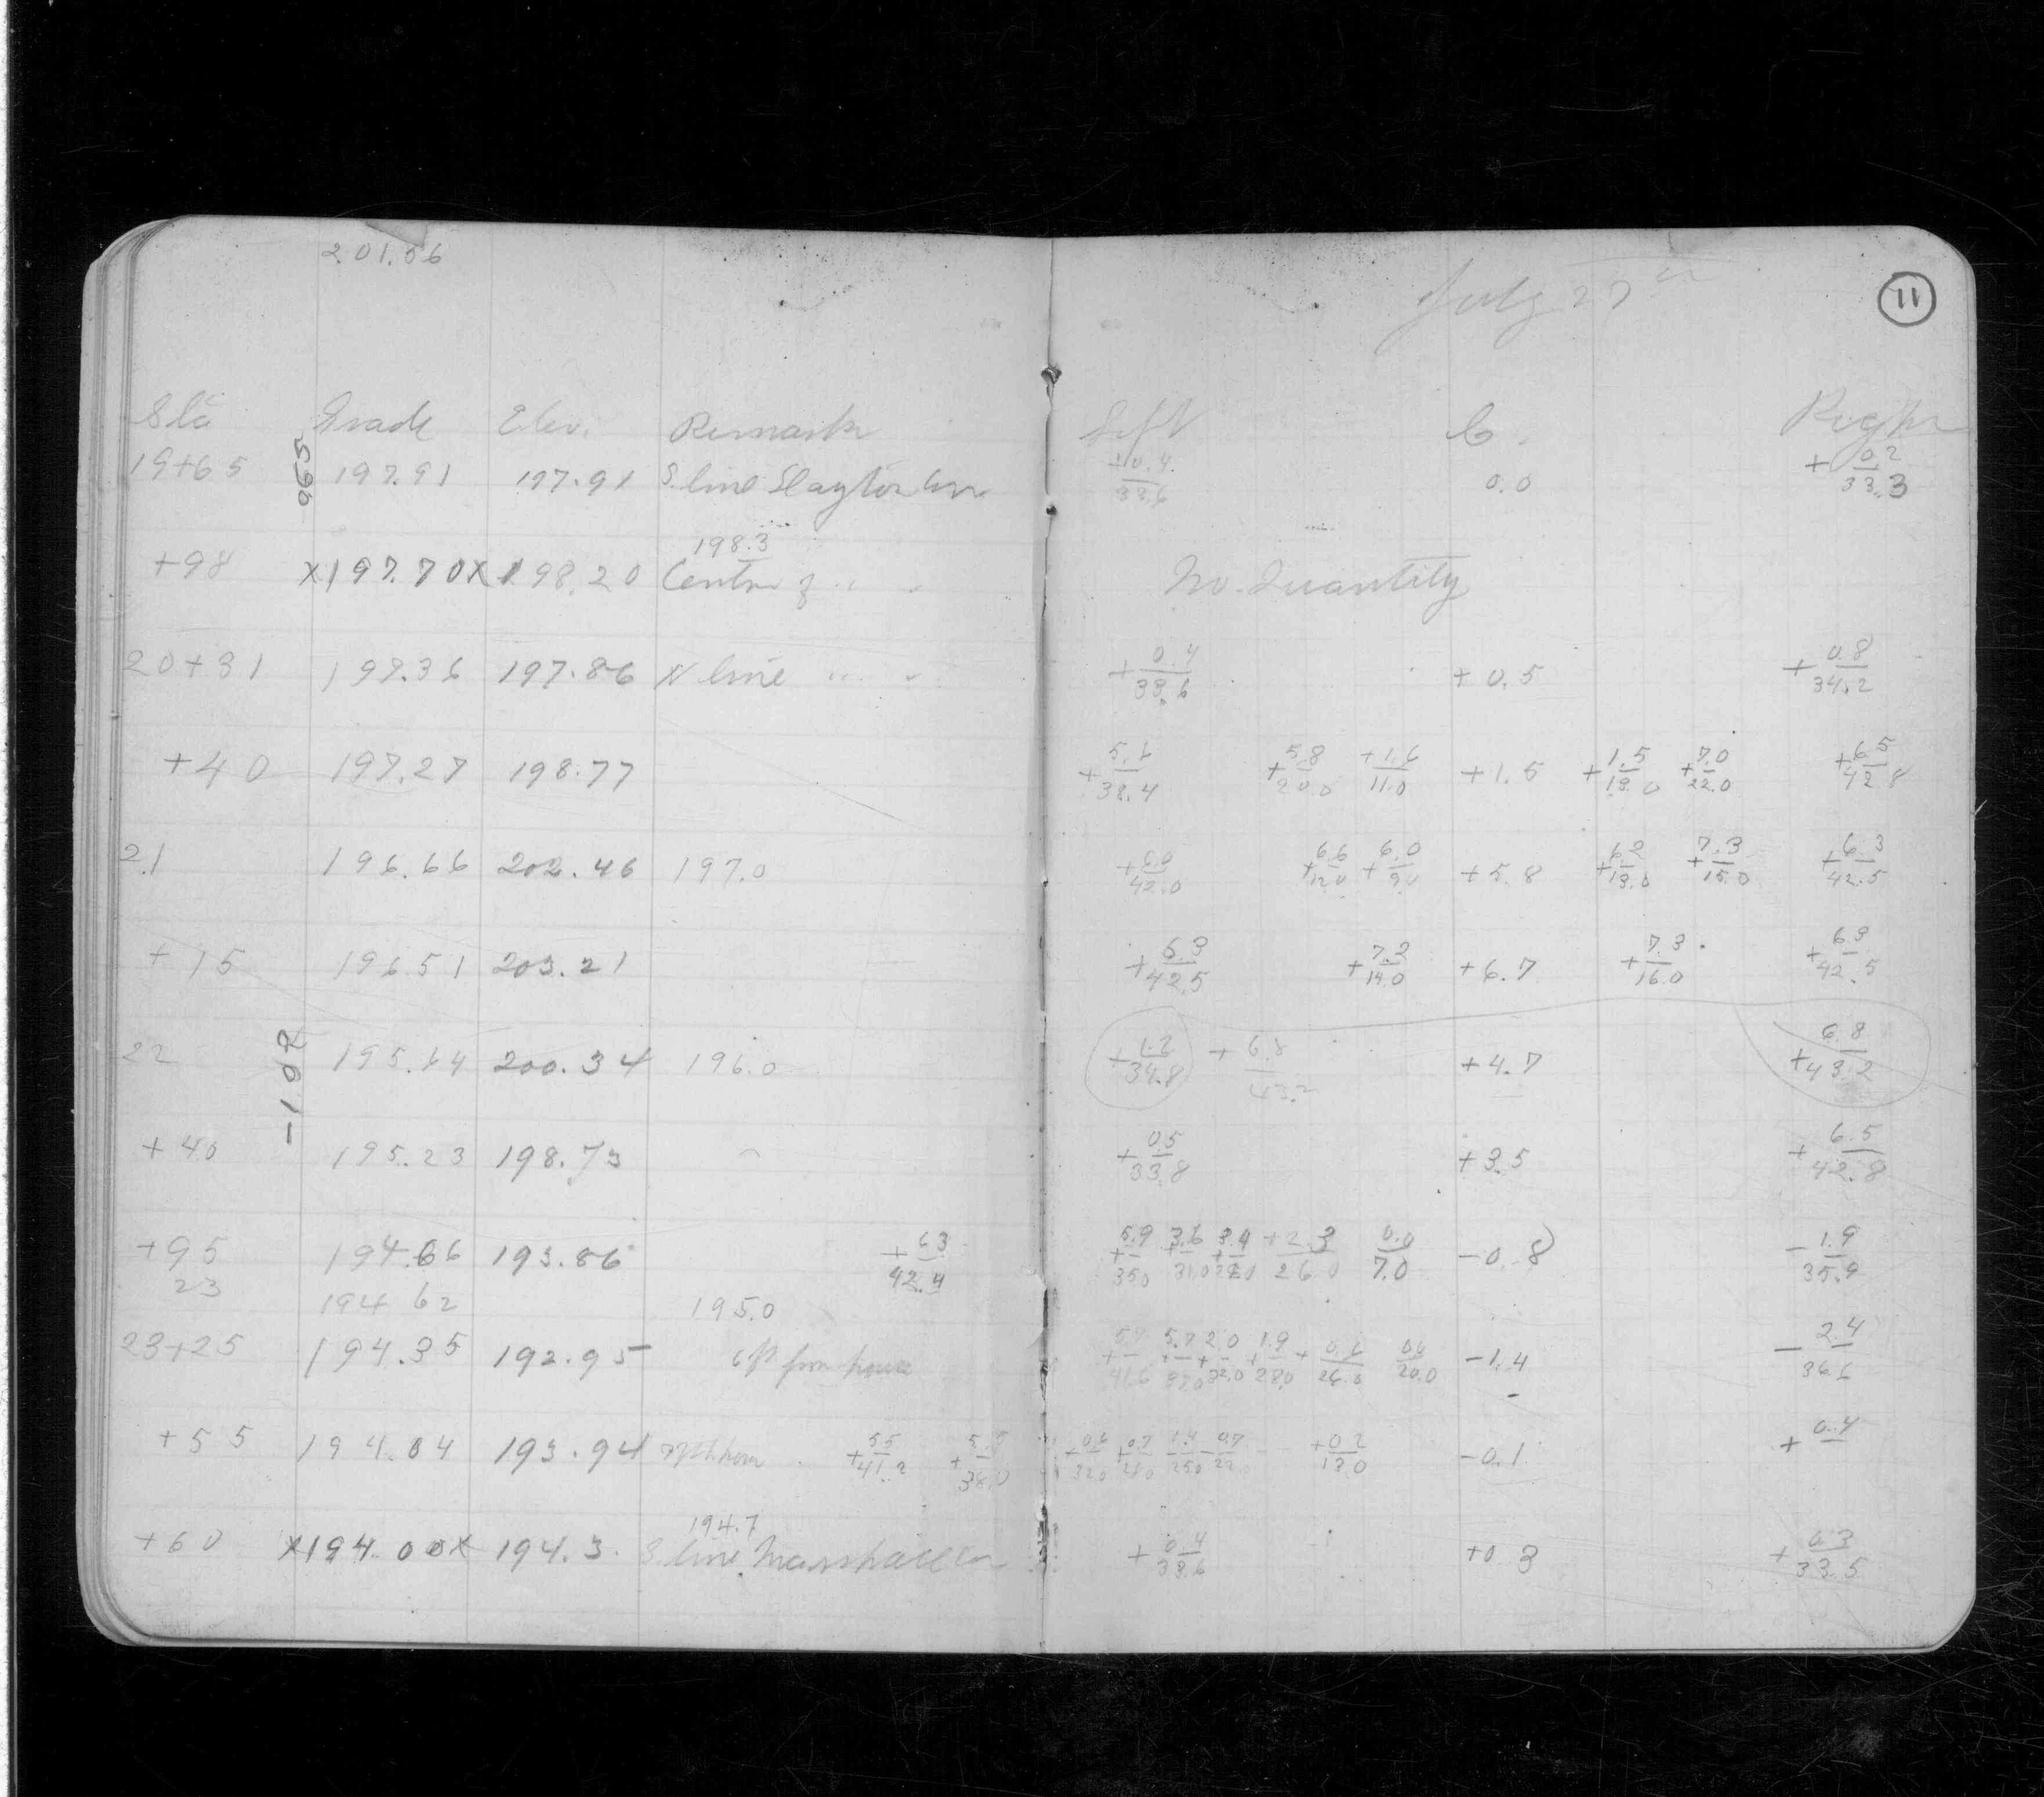 2.01.06
July 27th
11
Sta Grade Elev. Remarks Left C. Right
19+65 .965 197.91 197.91 S. line Slayton +0.4/33.6 0.0 +0.2/33.3
198.3
+98 x197.70x 198.20 Centre of " " No. Quantity
20+31 197.36 197.86 N line " " +0.4/33.6 +0.5 +0.8/34.2
+40 197.27 198.77 +5.6/38.4 +5.8/20.0 +1.6/11.0 +1.5 +1.5/18.0 +7.0/22.0 +6.5/42.8
21 196.66 202.46 197.0 +6.0/42.0 +6.6/12.0 +6.0/9.0 +5.8 +6.2/13.0 +7.3/15.0 +6.3/42.5
+15 196.51 203.21 +6.3/42.5 +7.3/14.0 +6.7 +7.3/16.0 +6.3/42.5
22 -1.02 195.64 200.34 196.0 +1.2/34.8 +6.8/43.2 +4.7 +6.8/43.2
+40 195.23 198.73 +0.5/33.8 +3.5 +6.5/42.8
+95 194.66 193.86 +6.3/42.4 +5.9/35.0 +3.6/31.0 +3.4 +2.3/26.0 0.0/7.0 -0.8 -1.9/35.9
23 194 62 195.0
23+25 194.35 192.95 6 ft from house 5.7/41.6 +5.7 +2.0/32.0 +1.9/28.0 +0.6/26.0 0.6/20.0 -1.4 -2.4/36.6
+55 194.04 193.94 +5.5/41.2 +5.5/38.0 +0.6/32.0 +0.7 1.4/25.0 -0.7/22.0 +0.2/13.0 -0.1 +0.4
194.7
+60 x194.00x 194.3 S. line Marshall +0.4/33.6 +0.3 +0.3/33.5